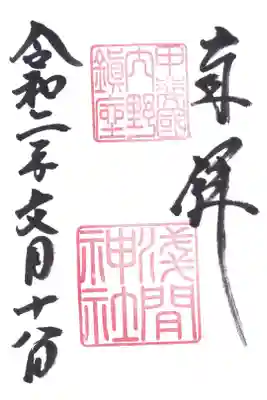 奉拝
甲斐國
内野
鎮座
淺間
神社
令和二年文月十日